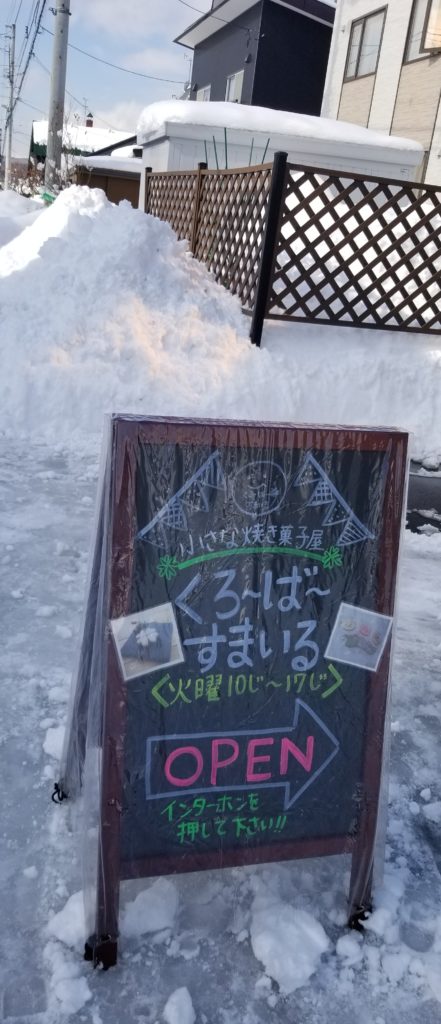 小さな焼き菓子屋
くろ～ば～
すまいる
<火曜10じ～17じ>
OPEN
インターホンを
押して下さい!!